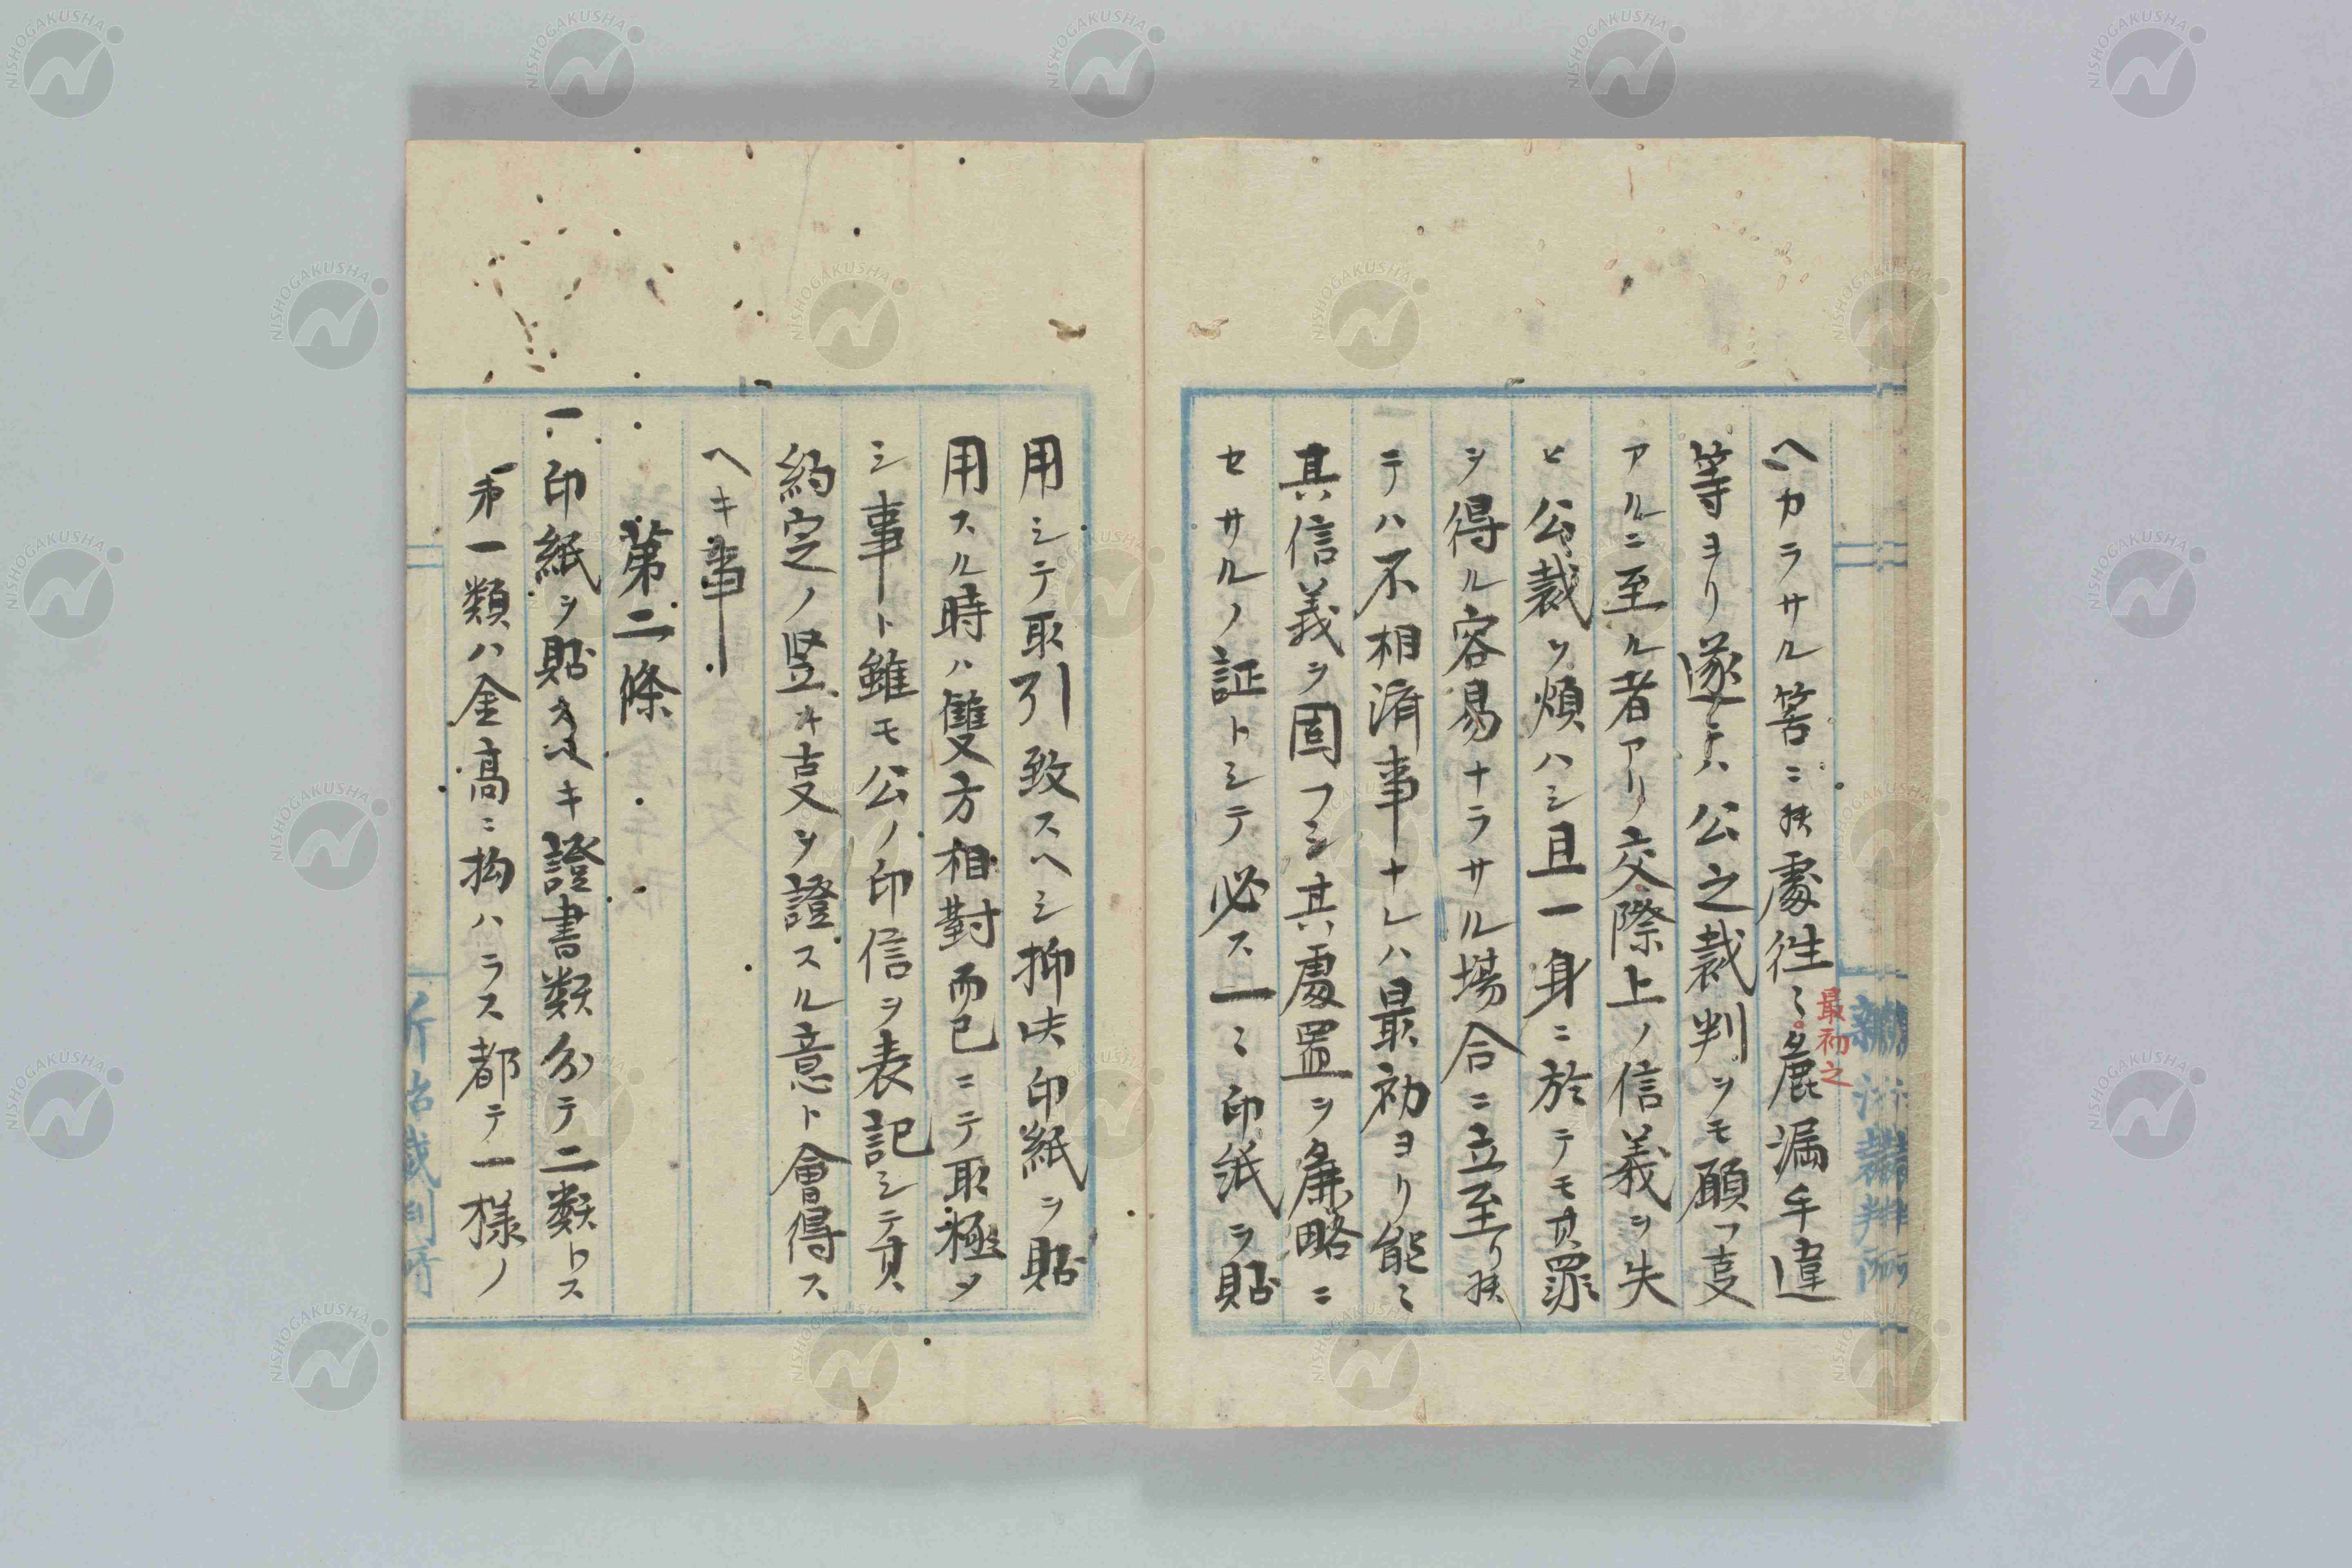 ヘカラサル筈ニ候處往々麁漏手違
最初之
等ヨリ遂テハ公之裁判ヲモ願フ亊
アルニ至ル者アリ交際上ノ信義ヲ失
ヒ公裁ヲ煩ハシ且一身ニ於テモ其罪
ヲ得ル容易ナラサル場合ニ立至リ候
テハ不相済事ナレハ最初ヨリ能々
其信義ヲ固フシ其處置ヲ麁略ニ
セサルノ証トシテ必ス一々印紙ヲ貼
用シテ取引致スヘシ抑此印紙ヲ貼
用スル時ハ雙方相對而已ニテ取極メ
シ事ト雖モ公ノ印信ヲ表記シテ其
約定ノ竪キ亊ヲ證スル意ト會得ス
ヘキ事
第二條
一印紙ヲ貼スヘキ證書類分テ二類トス
第一類ハ金高ニ拘ハラス都テ一樣ノ
NISHOGAKUSHA